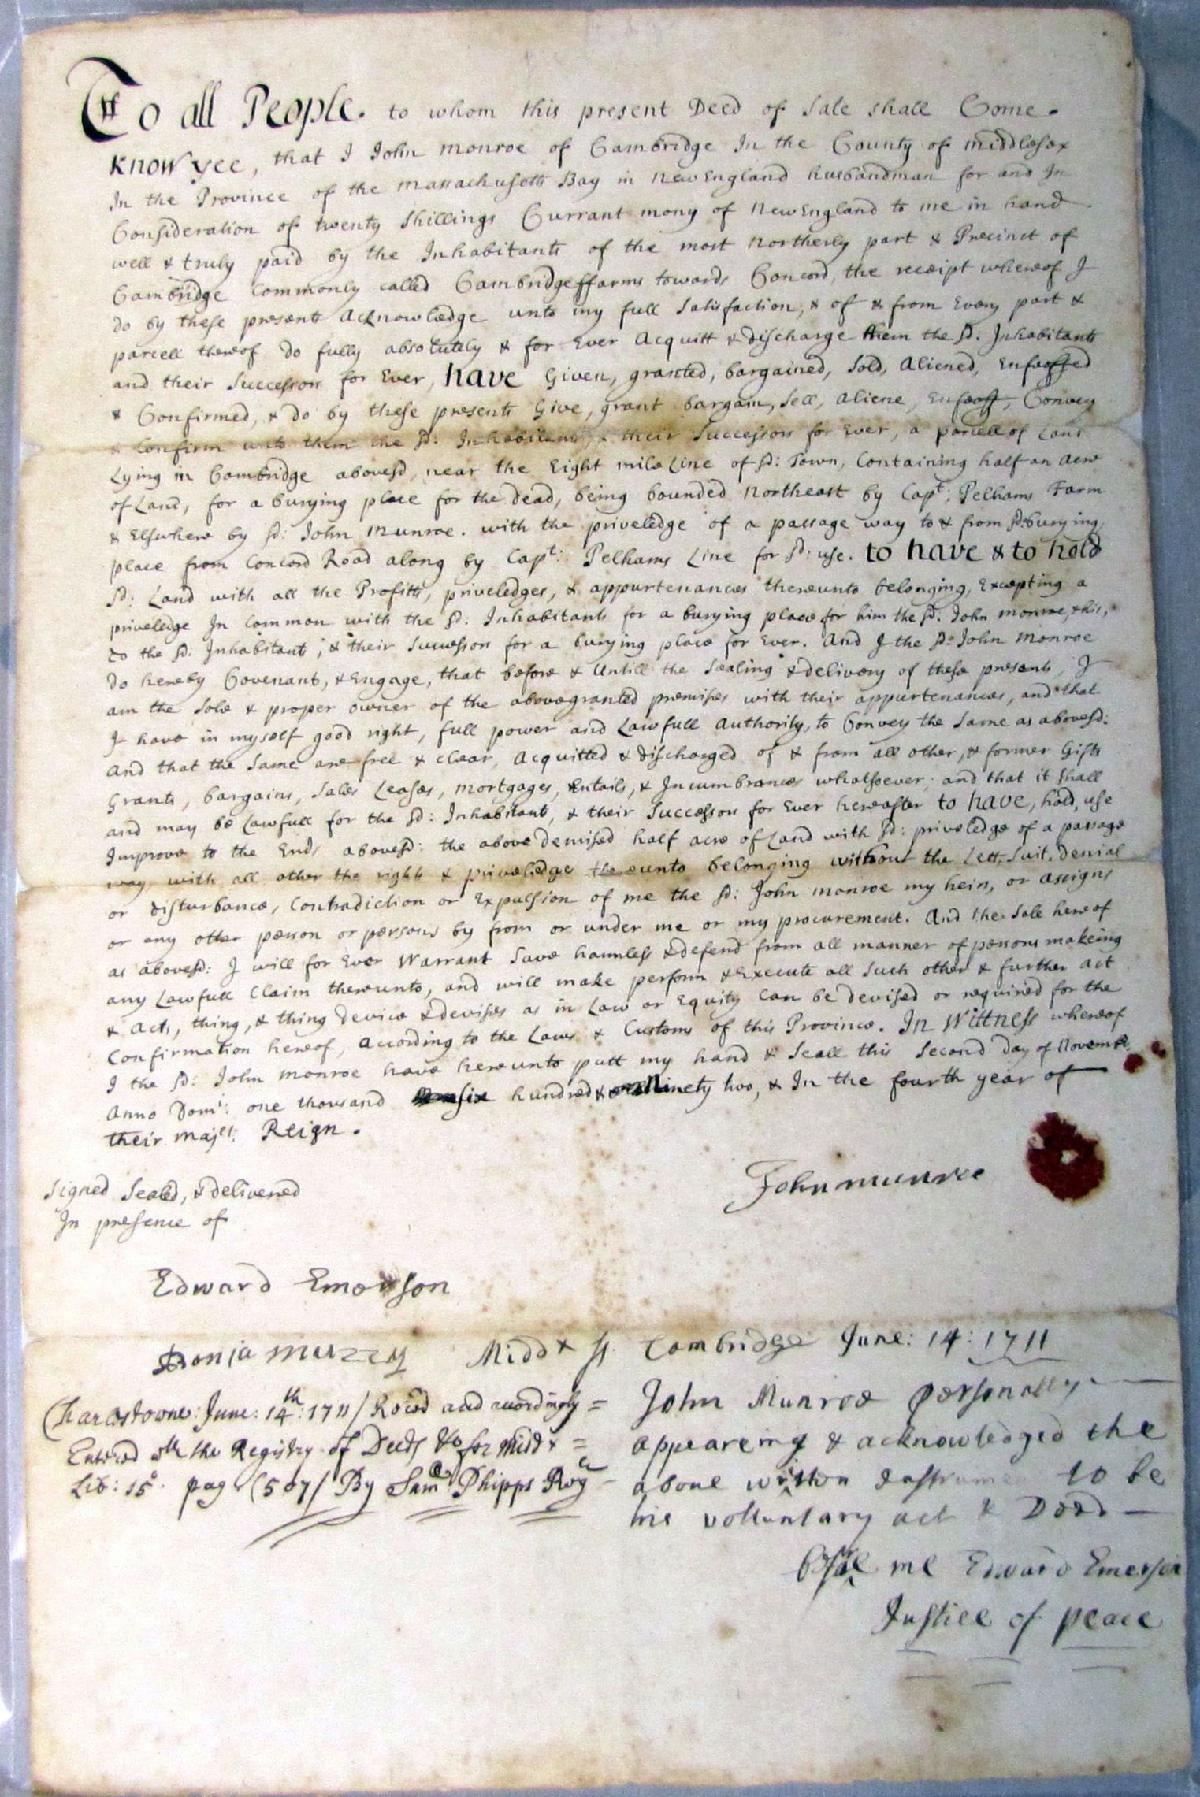 To all People. to whom this present Deed of Sale shall Come.
Know yee, that I John Monroe of Cambridge In the County of middlesex
In the Province of the Massachusetts Bay in NewEngland husbandman for and In
Consideration of twenty shillings Currant mony of NewEngland to me in hand
well & truly paid by the Inhabitants of the most Northerly part & Precinct of
Cambridge Commonly called Cambridgeffarms towards Concord, the receipt whereof I
do by these presents Acknowledge unto my full Satisfaction, & of & from Every part &
parcell thereof Do fully absolutely & for Ever Acquitt & discharge them the sd. Inhabitants
and their Successors for Ever, have Given, granted, bargained, Sold, Aliened, Enfeoffed
& Confirmed, & do by these presents Give, grant bargain, Sell, Aliene, Enfeoff, Convey
& Confirm unto them the sd: Inhabitants, & their Successors for Ever, a parcell of Land
Lying in Cambridge abovesd, near the Eight mile Line of sd: Town, Containing half an Acre
of Land, for a burying place for the Dead, being bounded Northeast by Capt: Pelhams Farm
& Elswhere by sd: John Munroe. with the priveledge of a passage way to & from sd: burying
place from Concord Road along by Capt: Pelhams Line for sd: use. to have & to hold
sd: Land with all the Profitts, priveledges, & appurtenances thereunto belonging, Excepting a
priveledge In Common with the sd: Inhabitants for a burying place for him the sd. John monroe, & his,
to the sd. Inhabitants, & their Successors for a burying place for Ever. And I the sd: John Monroe
do hereby Covenant, & Engage, that before & Untill the Sealing & delivery of these presents, I
am the Sole & proper owner of the abovegranted premises with their appurtenances, and that
I have in myself good right, full power and Lawfull Authority, to Convey the Same as abovesd:
And that the Same are free & clear, Acquitted & discharged of & from all other, & former Gifts
Grants, bargains, Sales Leases, mortgages, Entails, & Incumbrances whatsoever; and that it shall
and may be Lawfull for the sd: Inhabitants, & their Successors for Ever hereafter to have, hold, use
Improve to the Ends abovesd: the above demised half acre of Land with sd: priveledge of a passage
way with all other the rights & priveledge thereunto belonging without the Lett, Suit, Denial
or Disturbance, Contradiction or Expulsion of me the sd: John Monroe my heirs, or assigns
or any other person or persons by from or under me or my procurement. And the Sale hereof
as abovesd: I will for Ever Warrant Save harmless & defend from all manner of persons makeing
any Lawfull Claim thereunto, and will make perform & Execute all Such other & further act
& acts, thing, & things Device & devises as in Law or Equity Can be devised or required for the
Confirmation hereof, according to the Laws & Customs of this Province. In Wittness whereof
I the sd: John Monroe have hereunto putt my hand & Seall this Second Day of Novembr
Anno Domi: one thousand six hundred & Ninety two, & In the fourth year of
their majts. Reign.
Signed Sealed, & delivered
In presence of
John munroe
Edward Emerson
Benja Muzzey
Midd× ss. Cambridge June: 14: 1711
John Munroe personally
appeareing & acknowledged the
above written Instrument to be
his volluntary act & Deed
Before me Edward Emerson
Justice of peace
Charlstowne: June: 14th: 1711/ Reced and accordingly =
Entered wth the Registry of Deeds &c for Midd× =
Lib: 15o. pag (507/ By Saml Phipps Regr